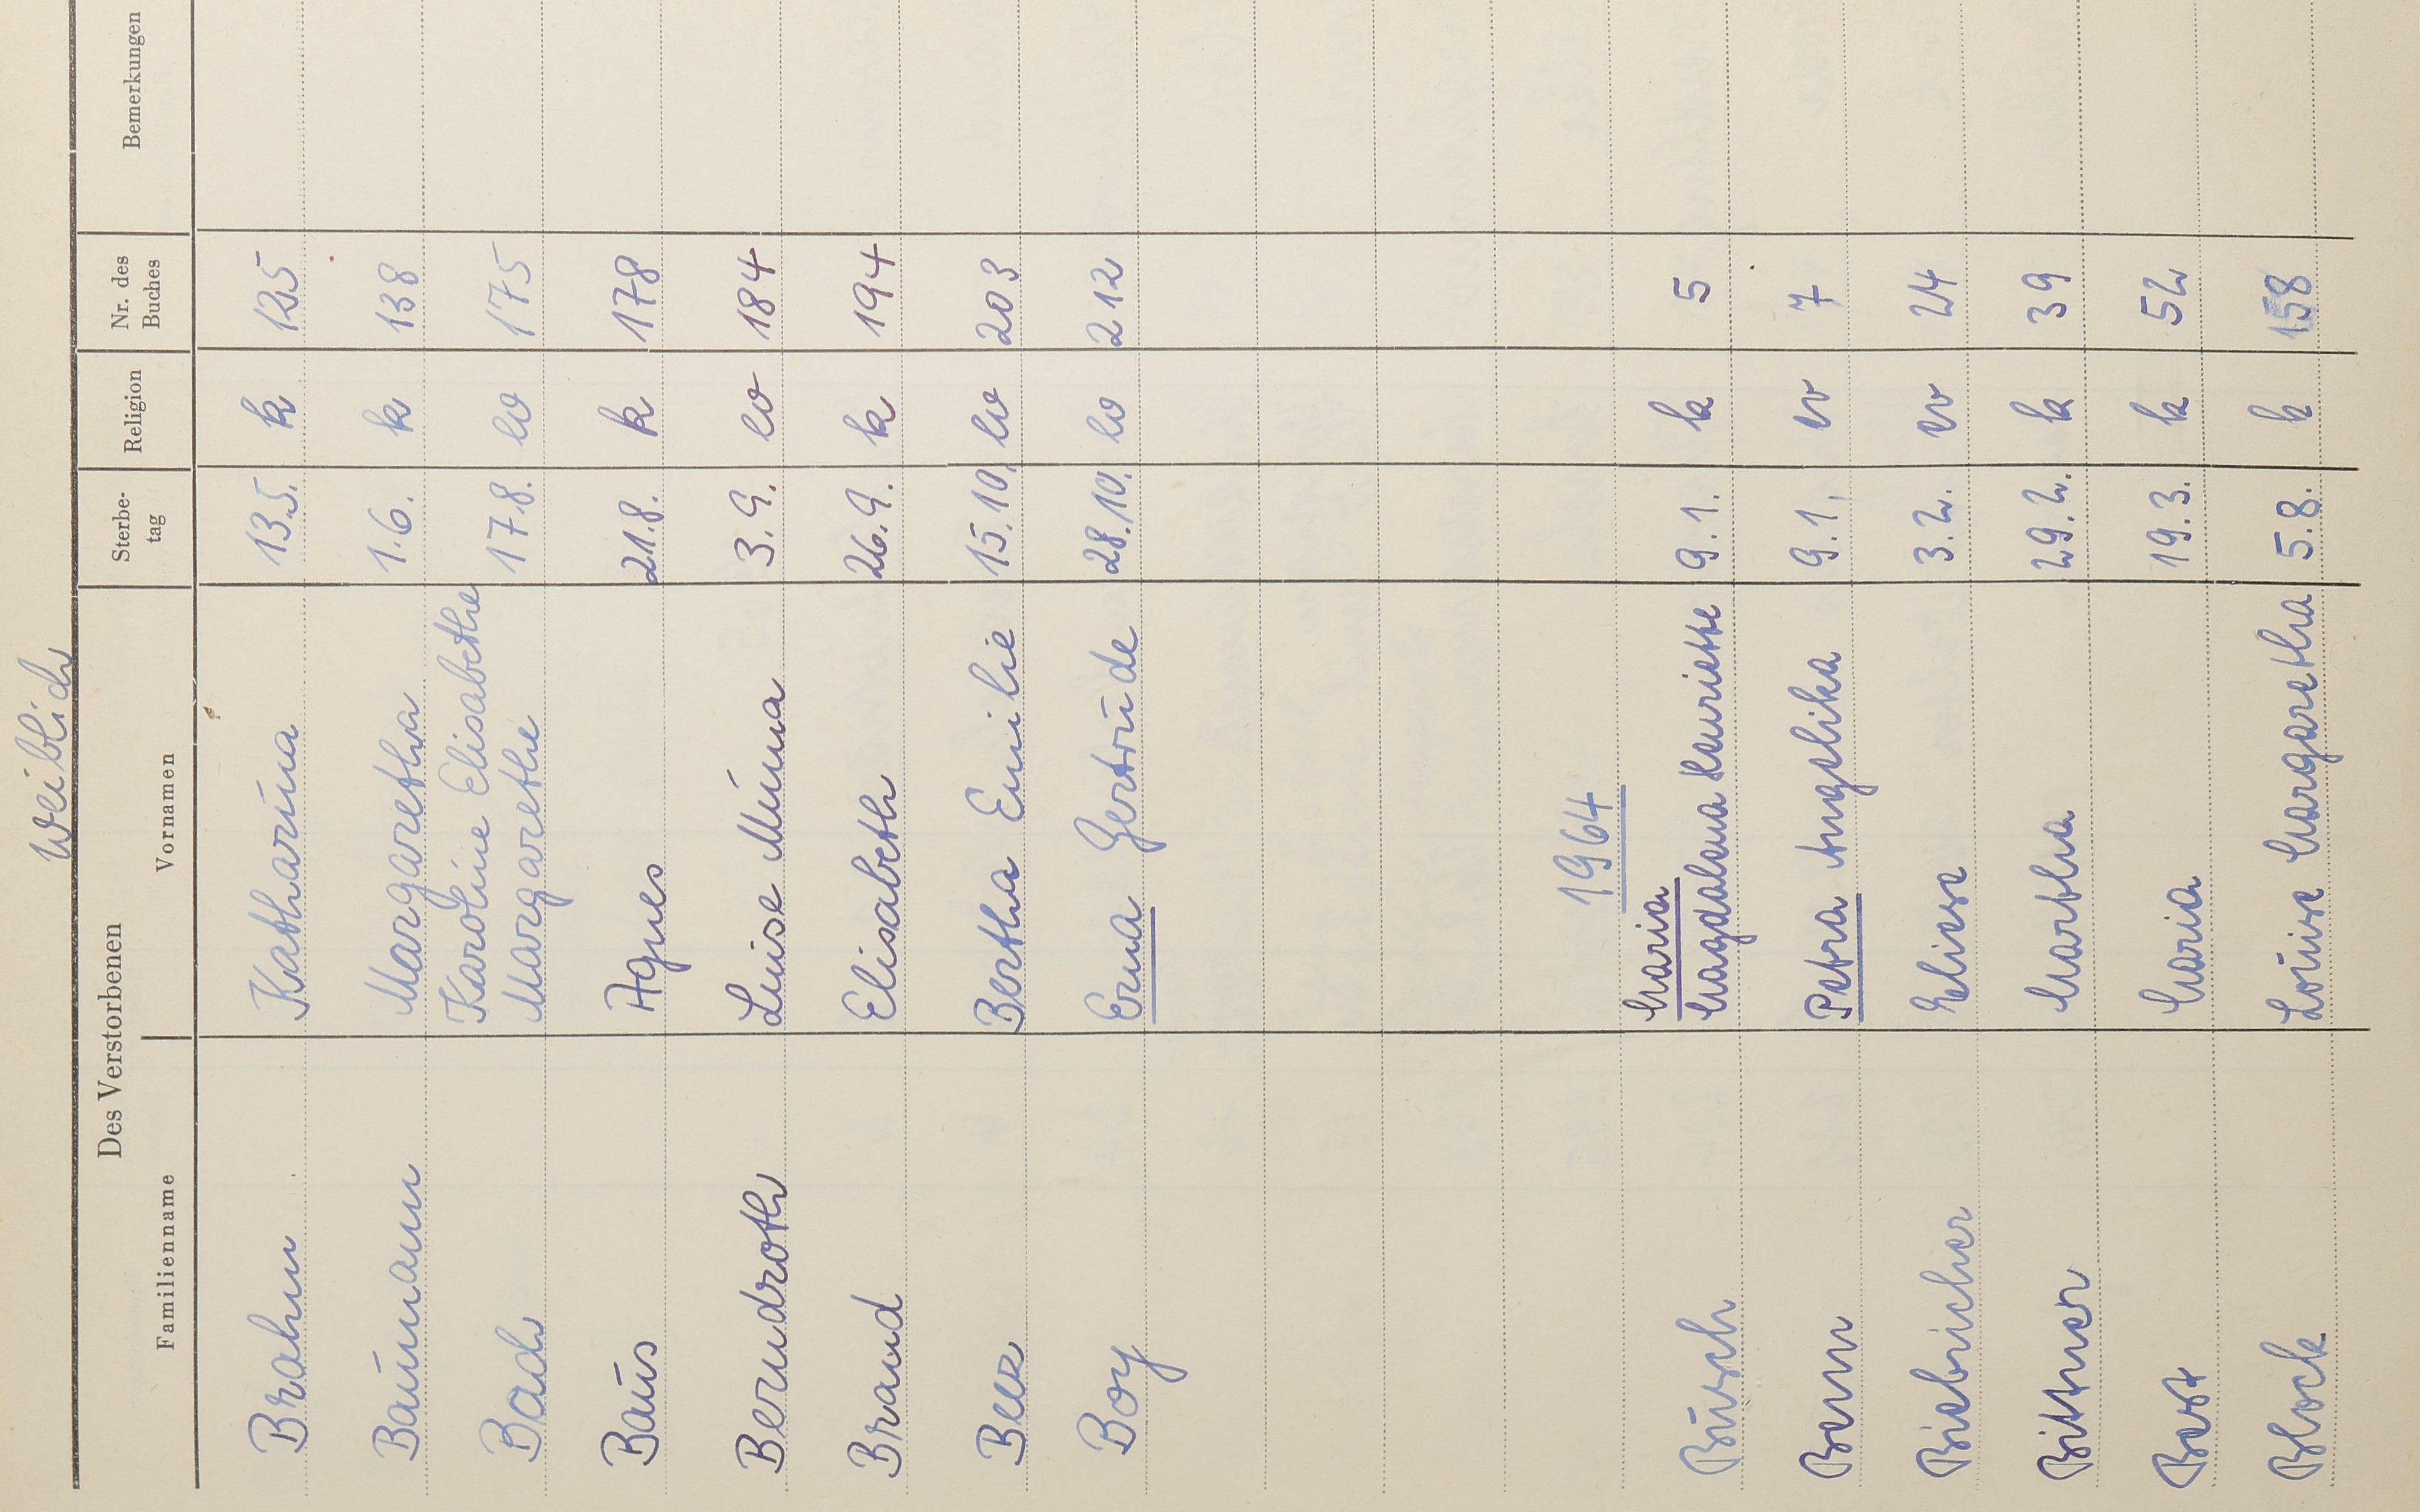 weiblich
Des Verstorbenen
Familienname Vornamen Sterbe- tag Religion Nr. des Buches Bemerkungen
Brahm Katharina 13.5. k 125
Baumann Margaretha 1.6. k 138
Karoline Elisabethe
Bach Margarethe 17.8. ev 175
Baus Agnes 21.8. k 178
Berndroth Luise Minna 3.9. ev 184
Brand Elisabeth 26.9. k 194
Beez Bertha Emilie 15.10. ev 203
Boy Erna Gertrude 28.10. ev 212
1964
Maria
Busch Magdalena Henriette 9.1. k 5
Benn Petra Angelika 9.1. ev 7
Biebricher Eliese 3.2. ev 24
Bittner Martha 29.2. k 39
Best Maria 19.3. k 52
Block Louise Margaretha 5.8. k 158